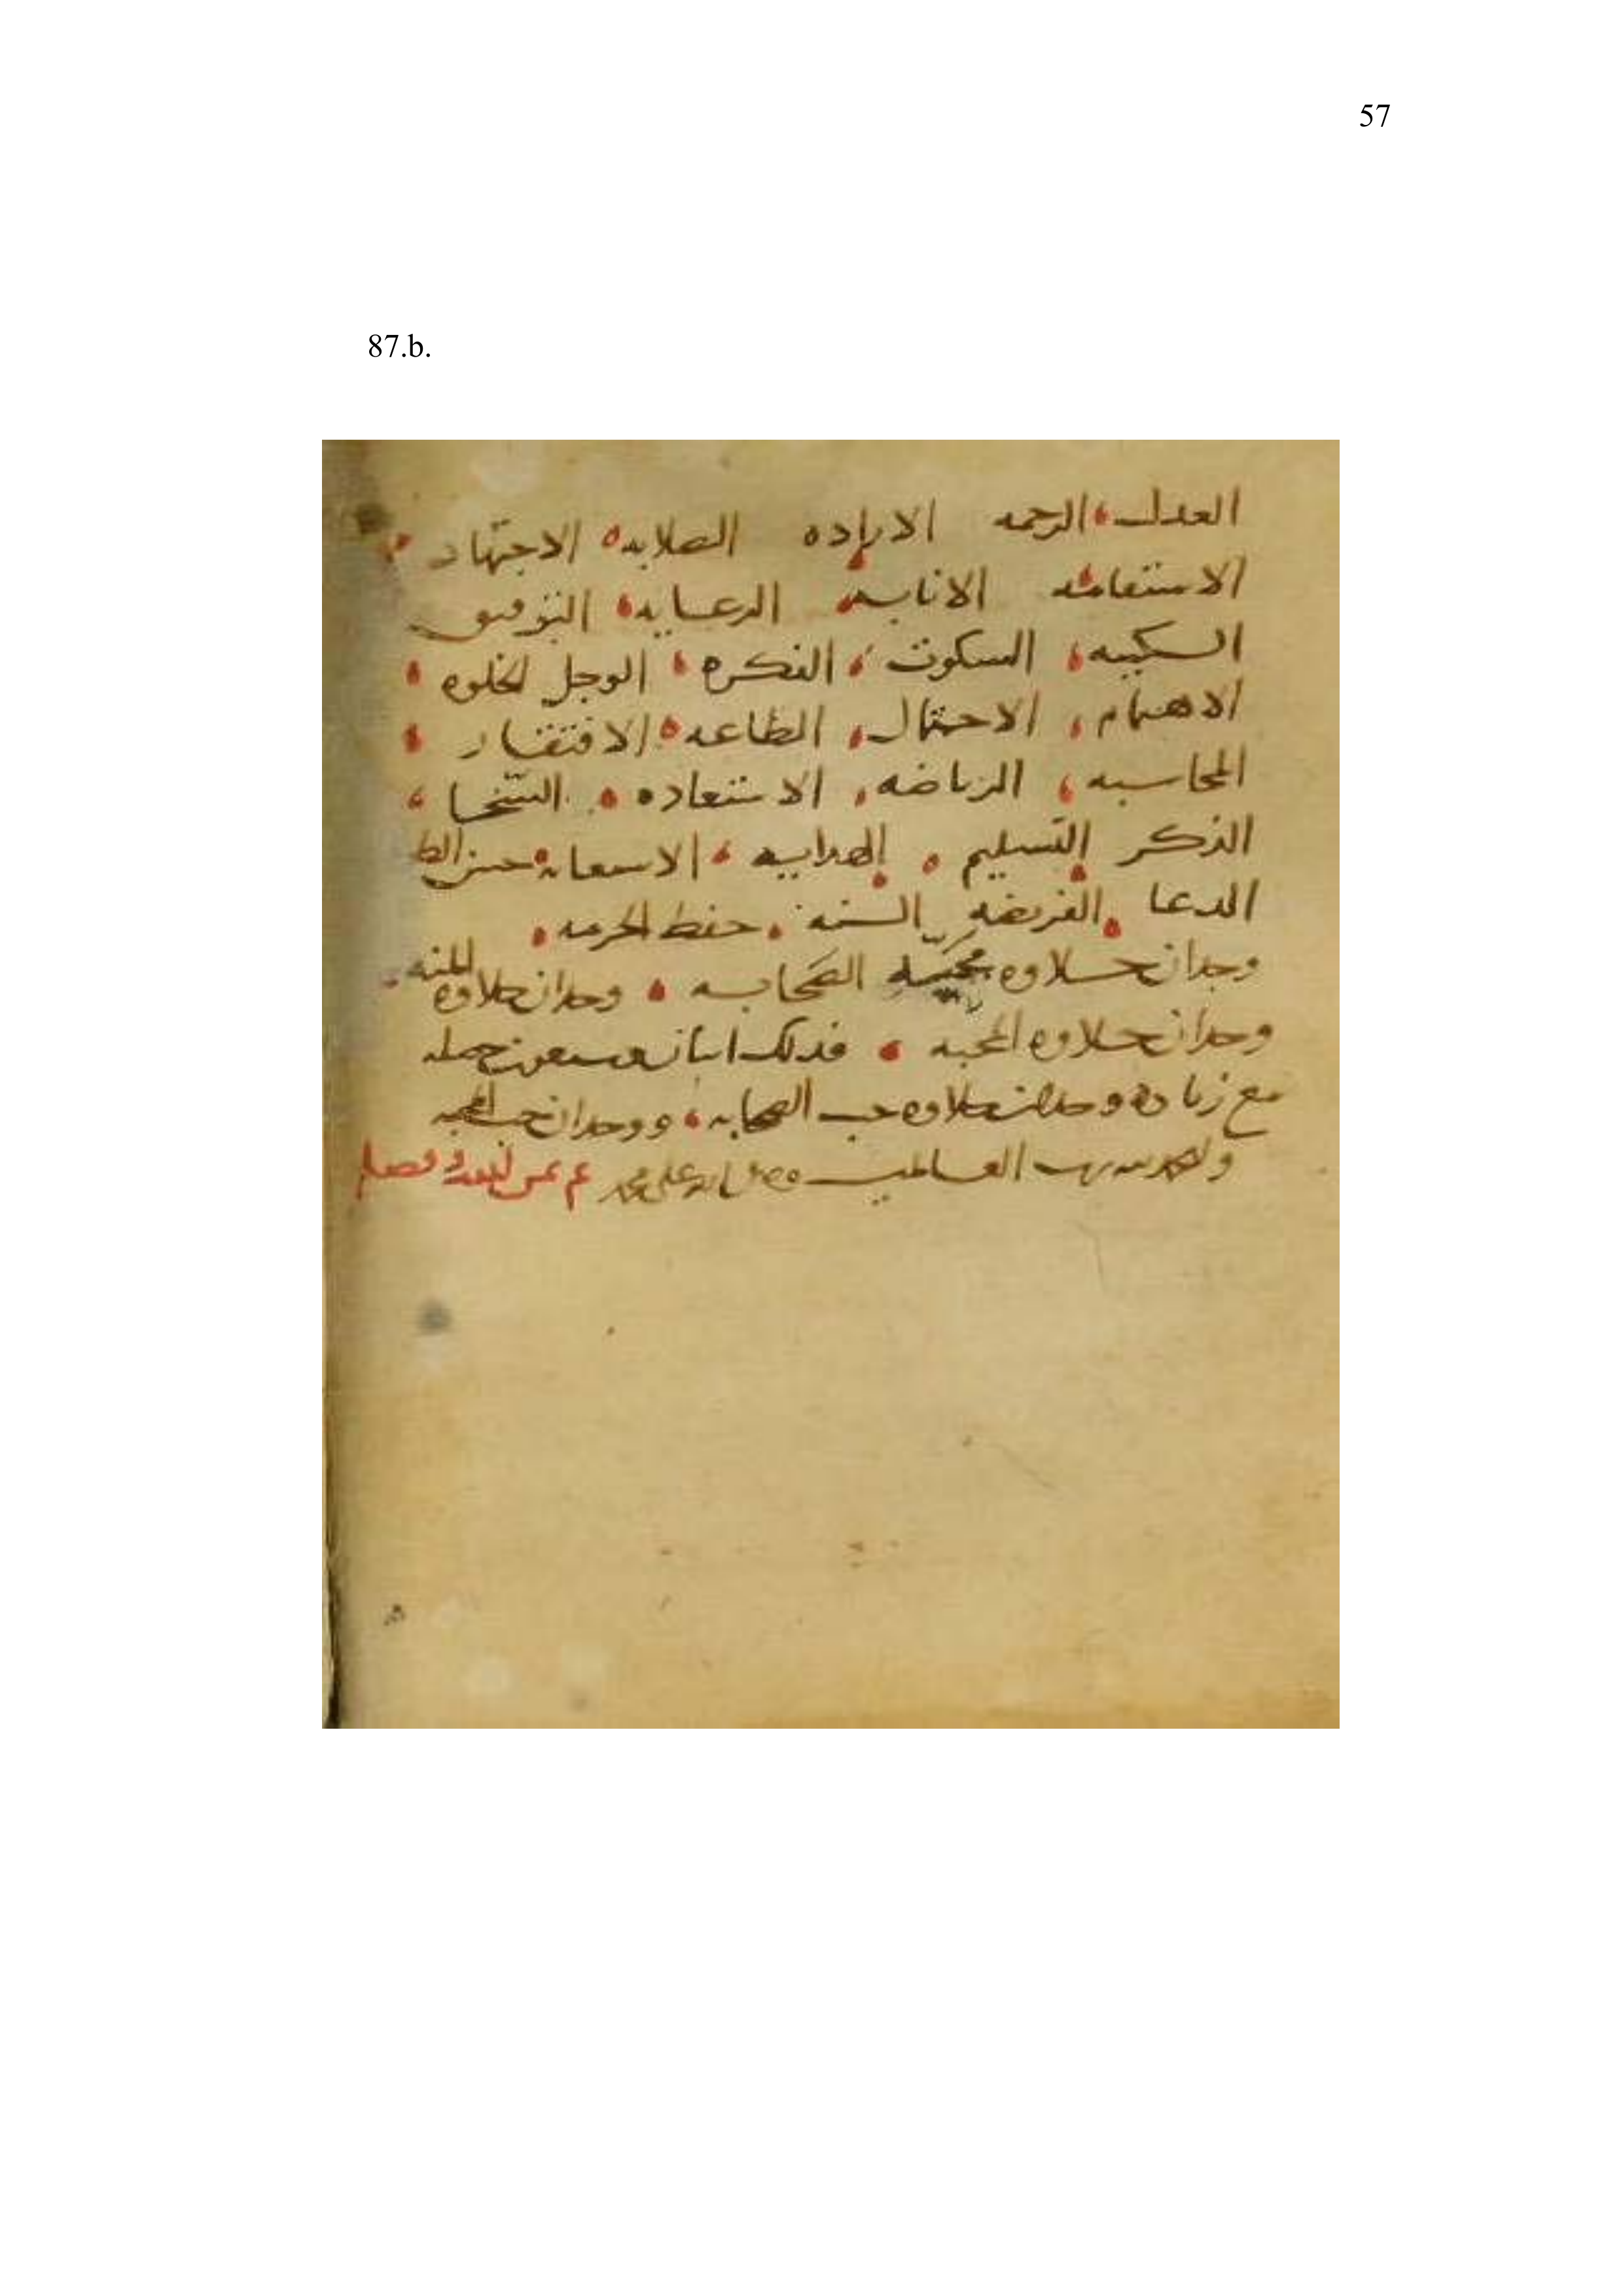 57
87.b.
العدل الرحمه الاراده الصلابه الاجتهاد
الاستقامه الانابه الرعايه التوفيق
السكينه السكوت الفكره الوجل الخلوه
الاهتمام الاحتمال الطاعه الافتقار
المحاسبه الرياضه الاستعاذه السخا
الذكر التسليم الهدايه حسن
الدعا الفريضه السنه حفظ الحرمه
وجدان حلاوه محبه الصحابه وجدان حلاوه المنه
وجدان حلاوه المحبه فذلك جمله
مع زياده وجدان حلاوه حب الصحابه ووجدان حب المحبه
والحمد لله رب العالمين على محمد